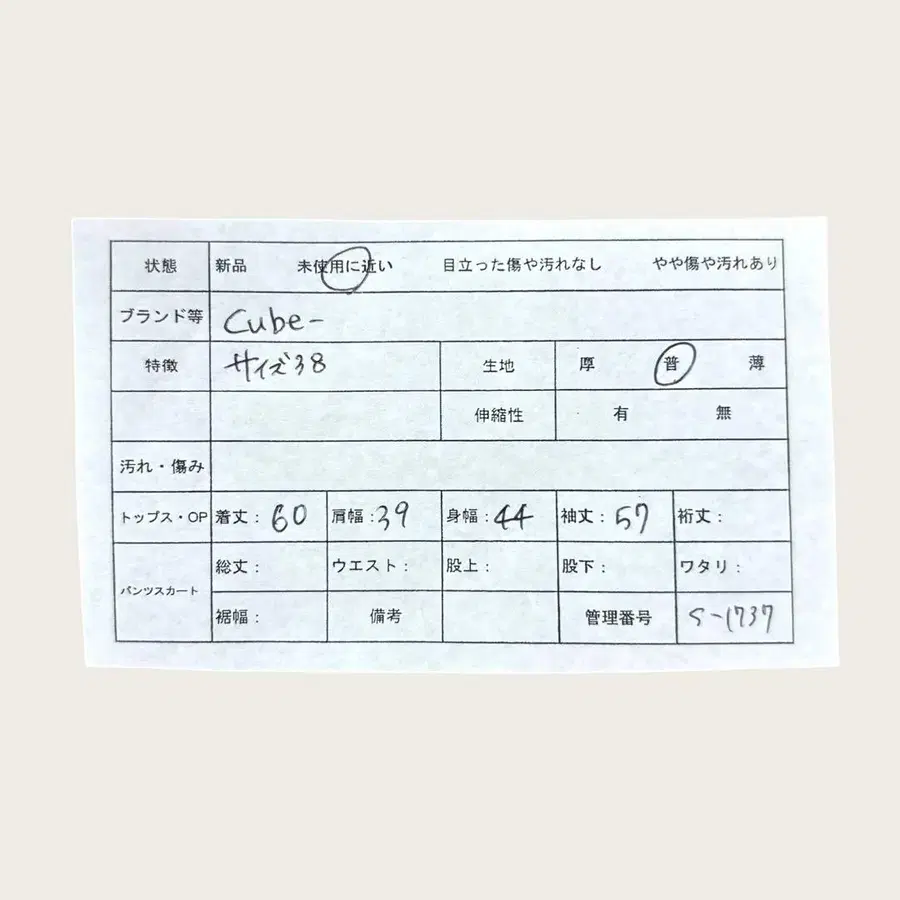 状態 新品 未使用に近い 目立った傷や汚れなし やや傷や汚れあり
ブランド等 Cube-
特徴 サイズ38 生地 厚 普 薄
伸縮性 有 無
汚れ・傷み
トップス・OP 着丈：60 肩幅：39 身幅：44 袖丈：57 裄丈：
パンツスカート 総丈： ウエスト： 股上： 股下： ワタリ：
裾幅： 備考 管理番号 S-1737